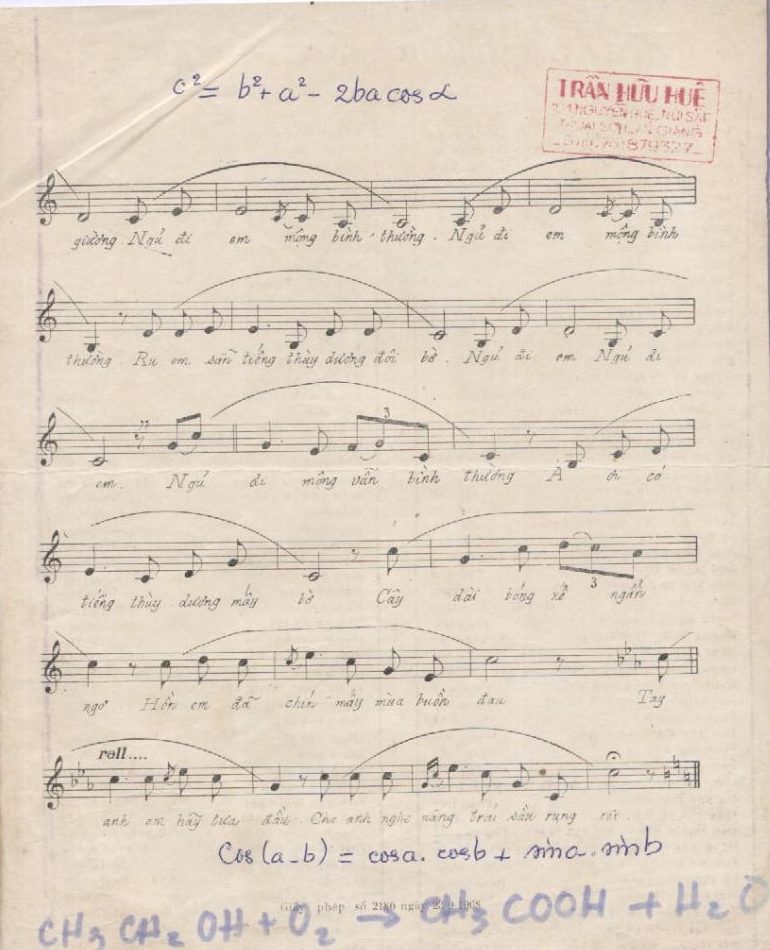 c² = b² + a² - 2ba cos α
TRẦN HỮU HUÊ
NGUYỄN HUỆ, NÚI SẬP
THOẠI SƠN, AN GIANG
879327
giường Ngủ đi em mộng bình thường. Ngủ đi em mộng bình
thường Ru em sẵn tiếng thùy dương đôi bờ. Ngủ đi em Ngủ đi
em. Ngủ đi mộng vẫn bình thường À ơi có
3
tiếng thùy dương mấy bờ Cây dài bóng xế ngẩn
3
ngơ Hồn em đã chín mấy mùa buồn đau Tay
rall....
anh em hãy tựa đầu Cho anh nghe nặng trái sầu rụng rơi.
Cos(a-b) = cosa. cosb + sina. sinb
Giấy phép số 2180 ngày 1968
CH₃ CH₂ OH + O₂ → CH₃ COOH + H₂O